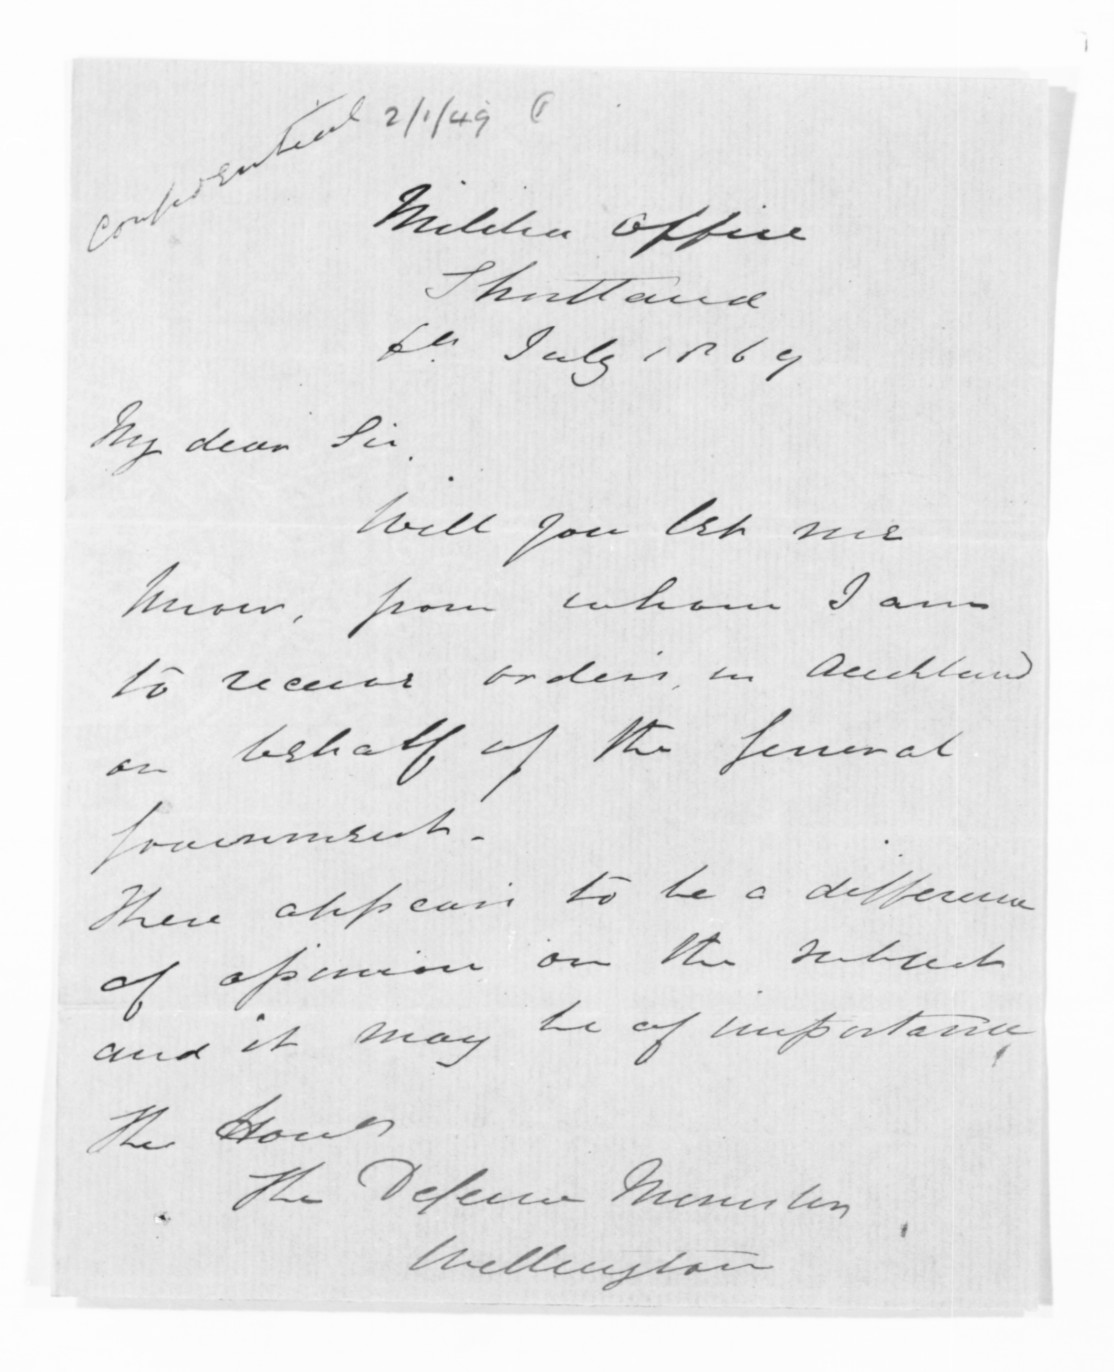 Confidential 2/1/49
Militia Office
Shortland
6th July 1869
My dear Sir,
Will you let me
know, from whom I am
to receive orders, in Auckland
on behalf of the General
Government.
There appears to be a difference
of opinion on the subject
and it may be of importance
The Honble
The Defence Minister
Wellington